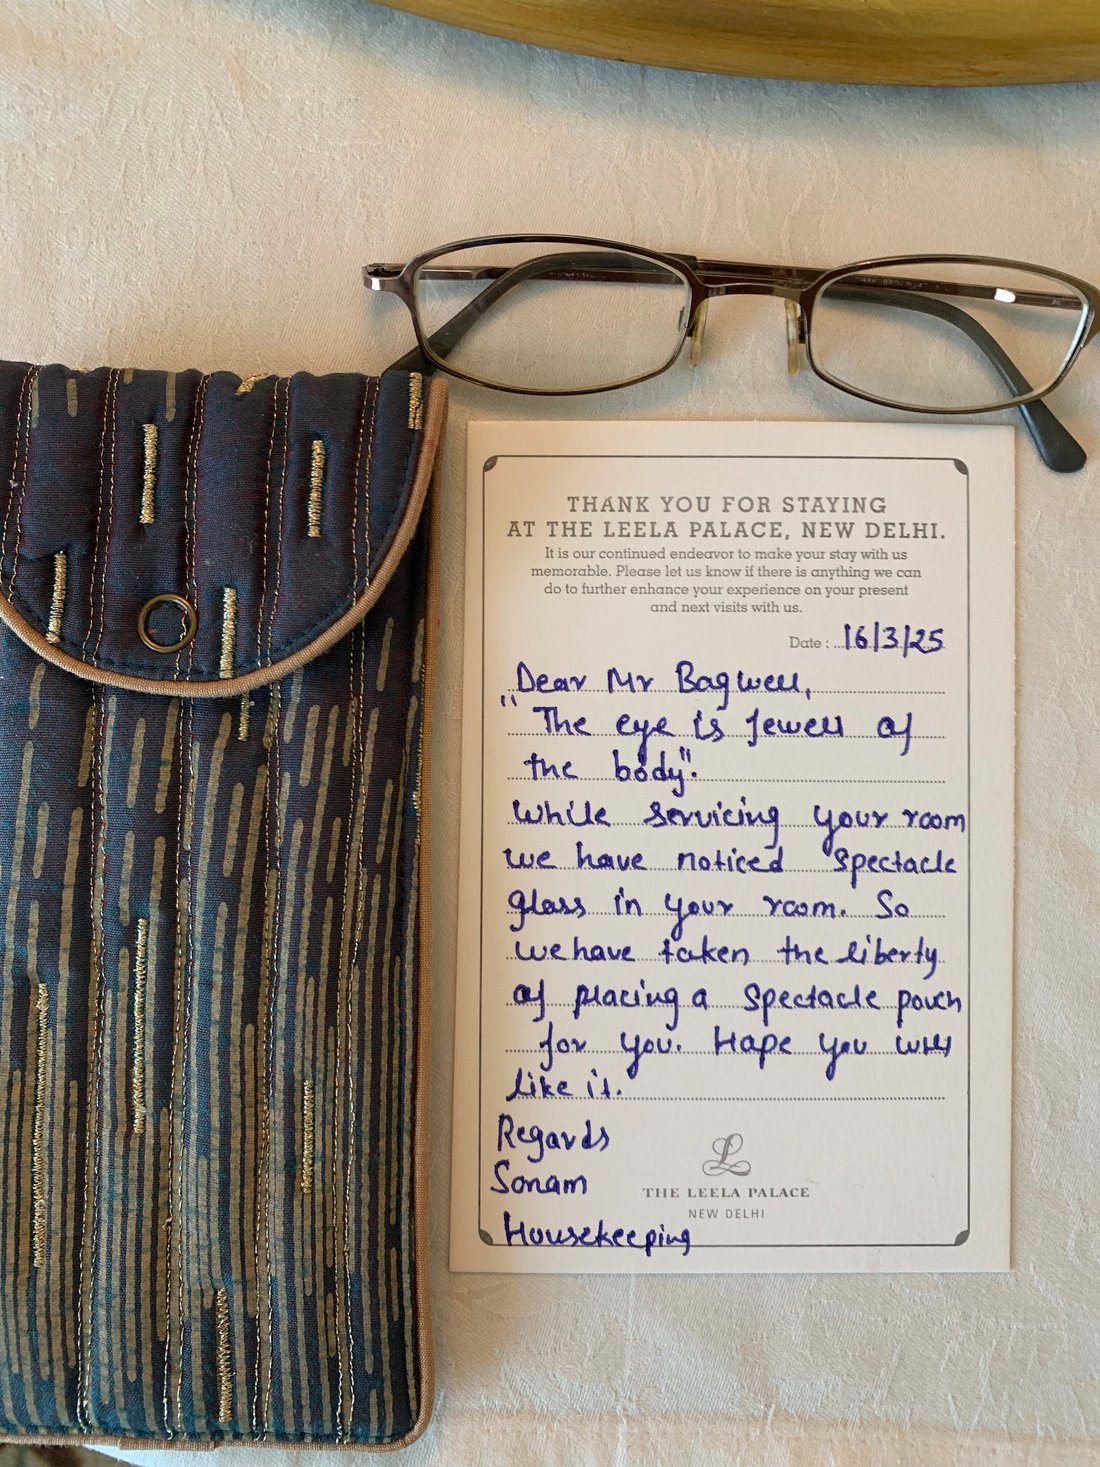 THANK YOU FOR STAYING
AT THE LEELA PALACE, NEW DELHI.
It is our continued endeavor to make your stay with us
memorable. Please let us know if there is anything we can
do to further enhance your experience on your present
and next visits with us.
Date : 16/3/25
Dear Mr Bagwell,
"The eye is jewell of
the body".
While servicing your room
we have noticed spectacle
glass in your room. So
we have taken the liberty
of placing a spectacle pouch
for you. Hope you will
like it.
Regards
Sonam
THE LEELA PALACE
NEW DELHI
Housekeeping